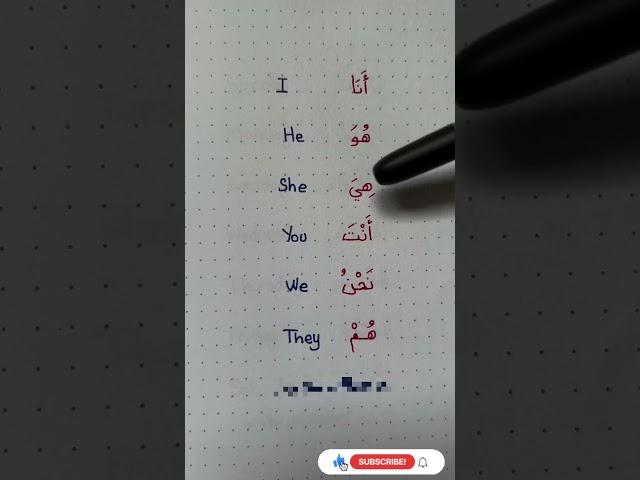 I أَنَا
He هُوَ
She هِيَ
You أَنْتَ
We نَحْنُ
They هُمْ
SUBSCRIBE!